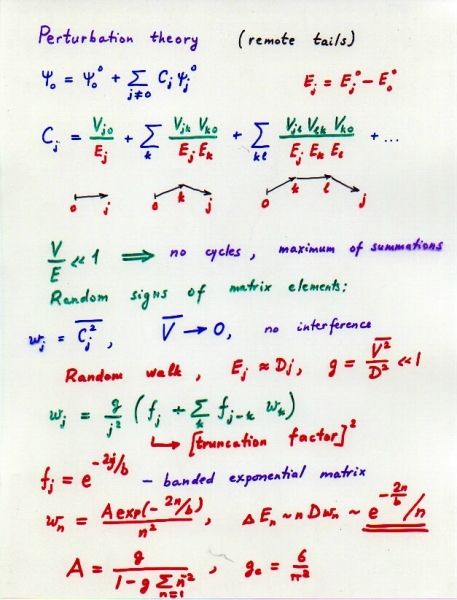 Perturbation theory (remote tails)
Ψ₀ = Ψ₀⁰ + Σ_{j≠0} C_j Ψ_j⁰     E_j = E_j⁰ − E₀⁰
C_j = V_{j0}/E_j + Σ_k V_{jk} V_{k0}/(E_j E_k) + Σ_{kl} V_{jl} V_{lk} V_{k0}/(E_j E_k E_l) + ...
0 j 0 k j 0 k l j
V/E ≪ 1 ⟹ no cycles, maximum of summations
Random signs of matrix elements:
w_j = \overline{C_j²}, \overline{V} → 0, no interference
Random walk, E_j ≈ Dj, g = \overline{V²}/D² ≪ 1
w_j = g/j² (f_j + Σ_k f_{j-k} w_k)
↳ [truncation factor]²
f_j = e^{-2j/b} – banded exponential matrix
w_n = A exp(-2n/b)/n², ΔE_n ~ n D w_n ~ e^{-2n/b}/n
A = g/(1 - g Σ_{n=1} n^{-2}), g_c = 6/π²